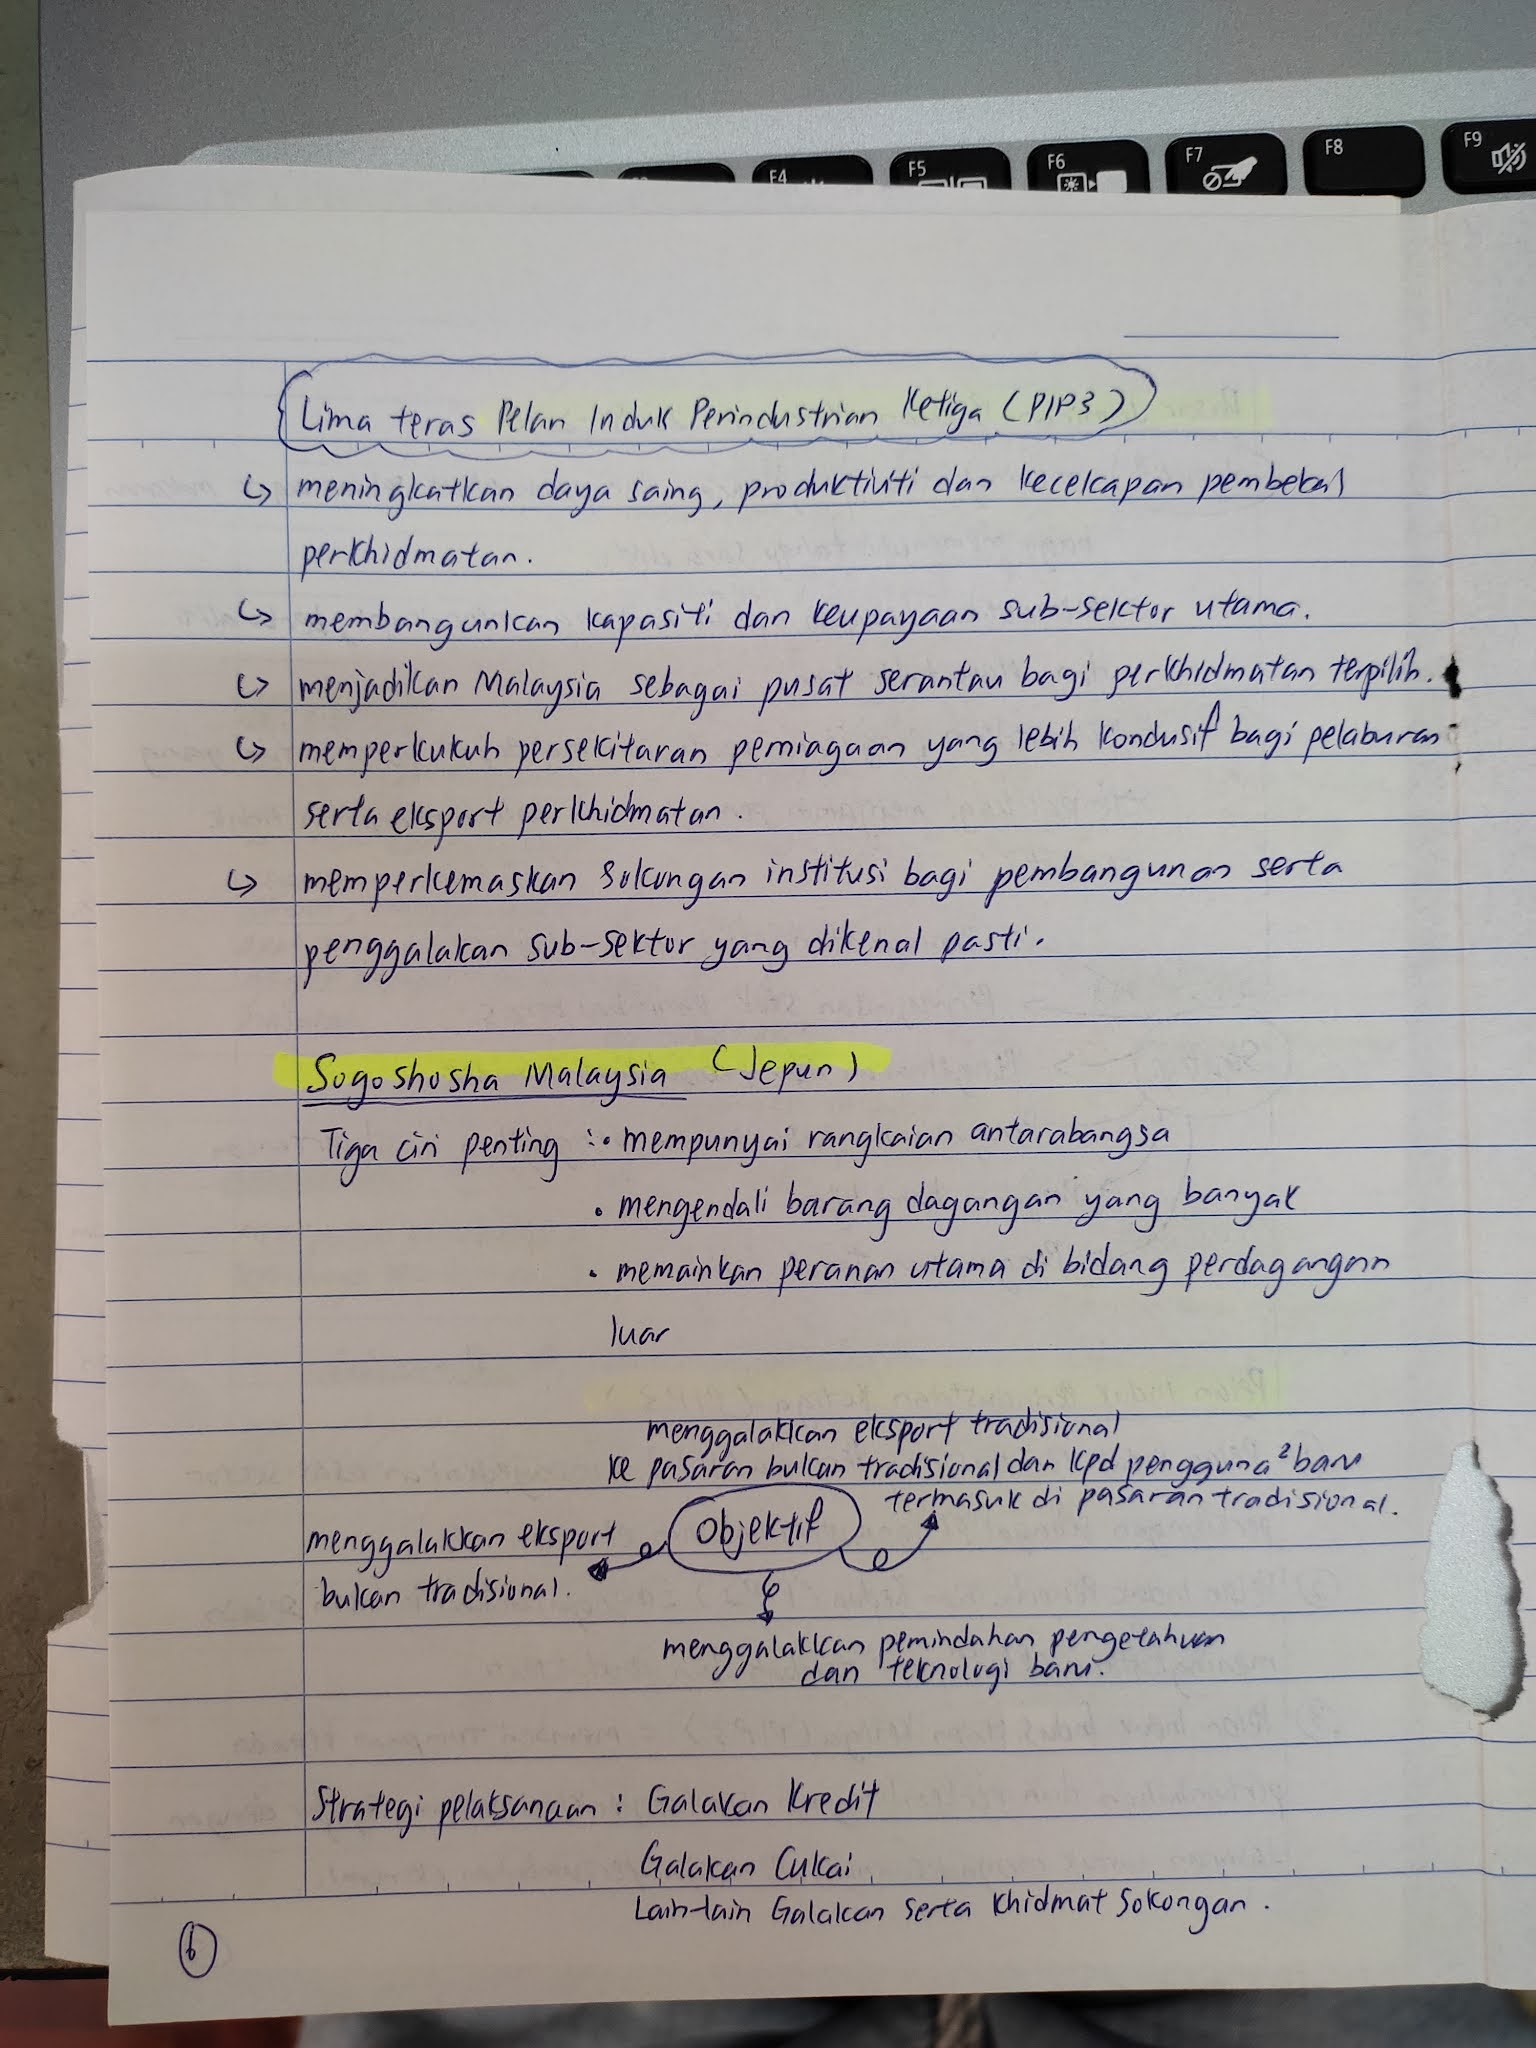 F4
F5
F6
F7
F8
F9
Lima teras Pelan Induk Perindustrian Ketiga (PIP3)
↳ meningkatkan daya saing, produktiviti dan kecekapan pembekal
perkhidmatan.
↳ membangunkan kapasiti dan keupayaan sub-sektor utama.
↳ menjadikan Malaysia sebagai pusat serantau bagi perkhidmatan terpilih.
↳ memperkukuh persekitaran perniagaan yang lebih kondusif bagi pelaburan
serta eksport perkhidmatan.
↳ memperkemaskan sokongan institusi bagi pembangunan serta
penggalakan sub-sektor yang dikenal pasti.
Sogoshosha Malaysia (Jepun)
Tiga ciri penting : • mempunyai rangkaian antarabangsa
• mengendali barang dagangan yang banyak
• memainkan peranan utama di bidang perdagangan
luar
menggalakkan eksport tradisional
ke pasaran bukan tradisional dan kpd pengguna² baru
termasuk di pasaran tradisional.
Objektif
menggalakkan eksport
bukan tradisional.
menggalakkan pemindahan pengetahuan
dan teknologi baru.
Strategi pelaksanaan : Galakan Kredit
Galakan Cukai
Lain-lain Galakan serta Khidmat Sokongan.
6